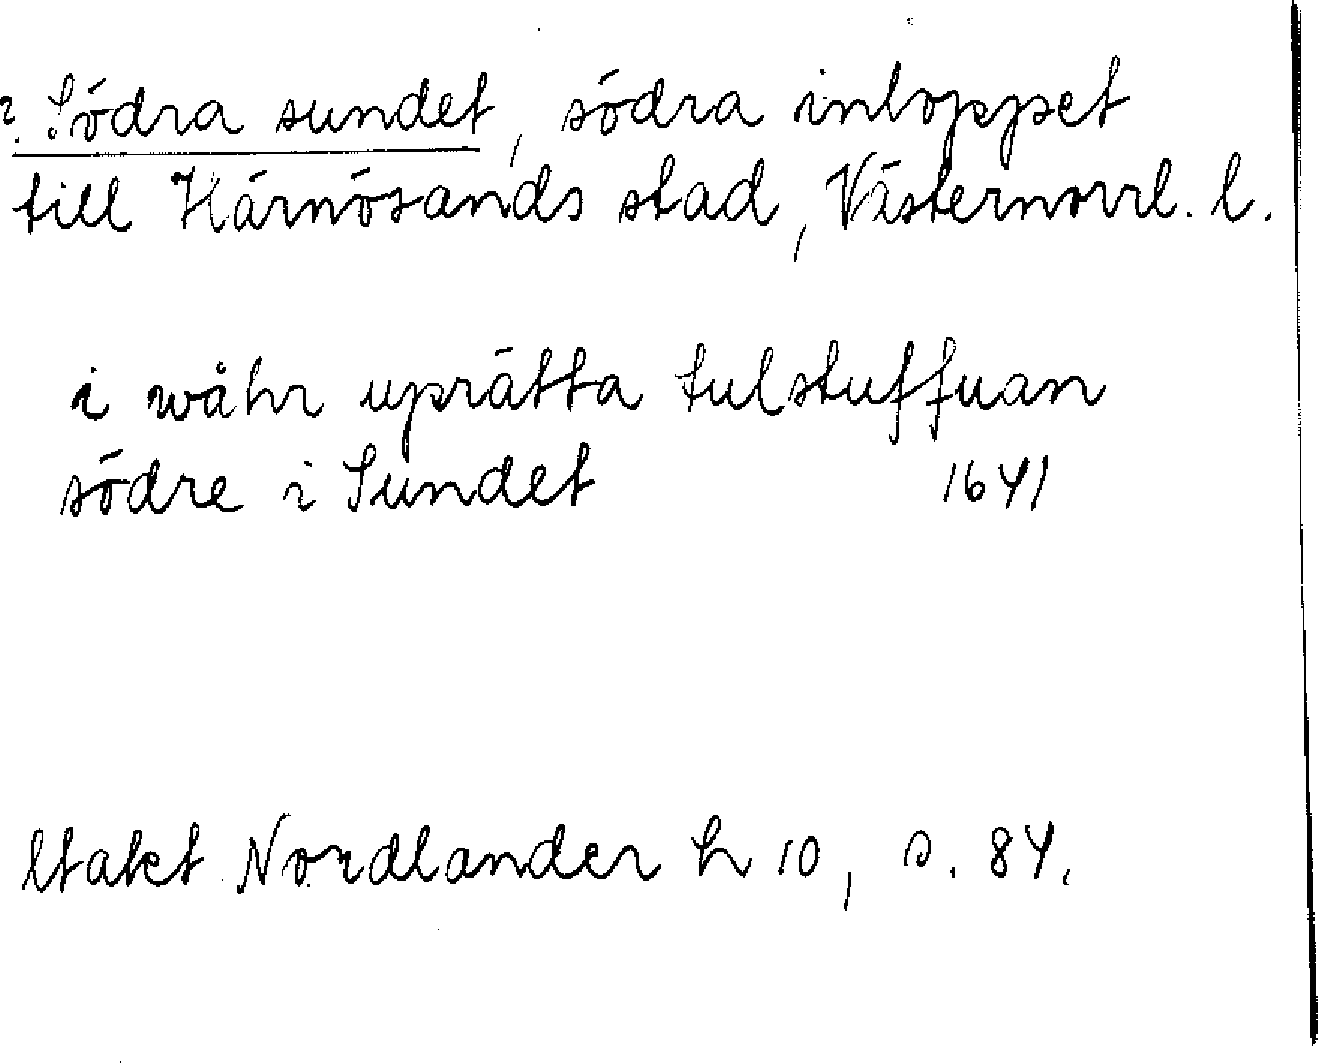 ? Södra sundet, södra inloppet
till Härnösands stad, Västernorrl. l.
i wåhr uprätta tulstuffuan
södre i Sundet 1641
Utakt Nordlander h 10, s. 84.